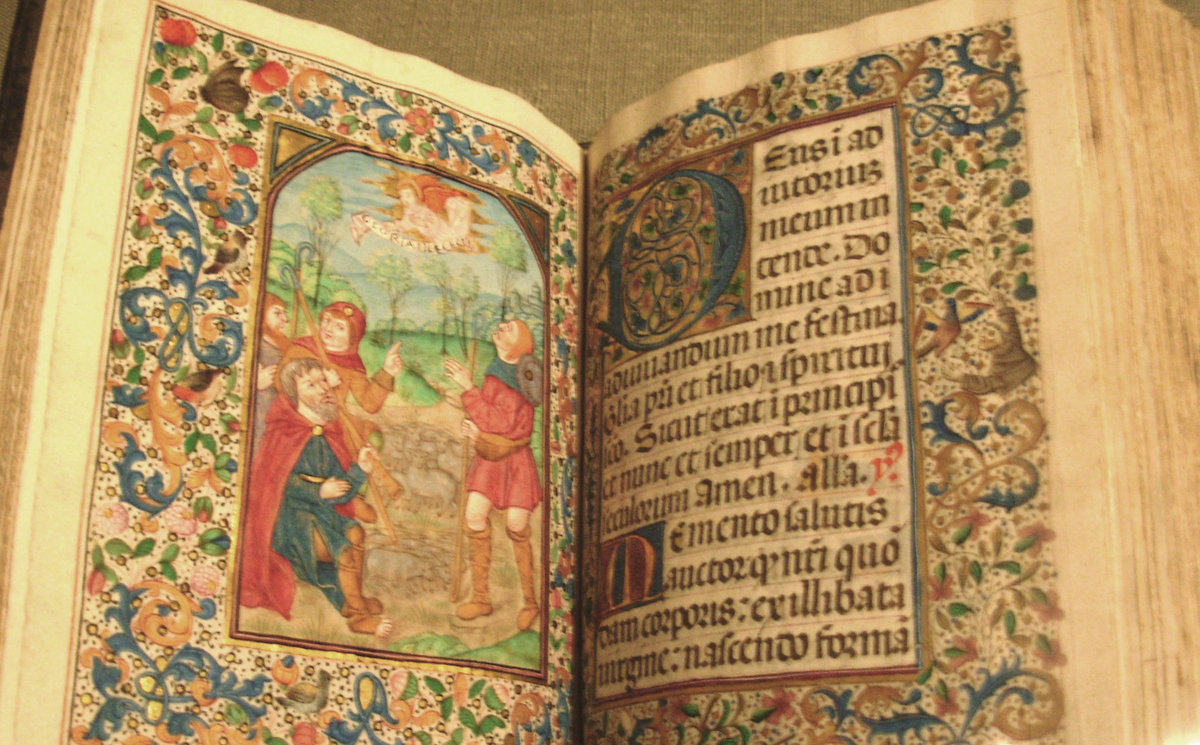 GLORIA IN EXCELSIS
Deus i ad
iutoriuz
meum in
tende. Do
mine ad i
adiuuandum me festina
Glia pri et filio i spiritui
sco. Sicut erat i principi
et nunc et semper et i scla
seculorum amen. alla. ys
Memento salutis
auctor qp nri quo
dam corporis: ex illibata
uirgine: nascendo forma